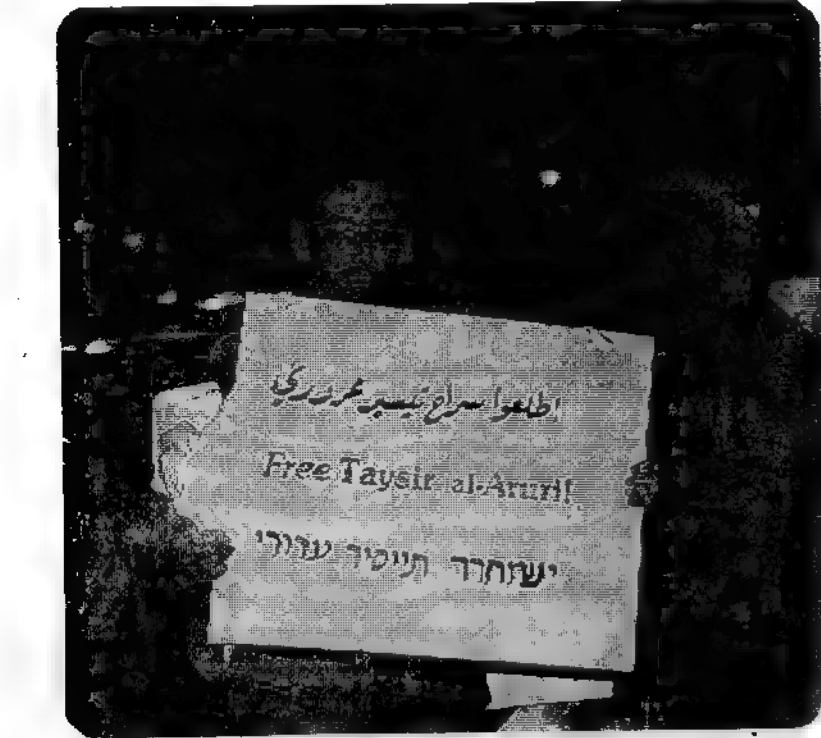 اطلعوا سراح تيسير عروري
Free Taysir al-Aruri!
ישוחרר תייסיר ערורי